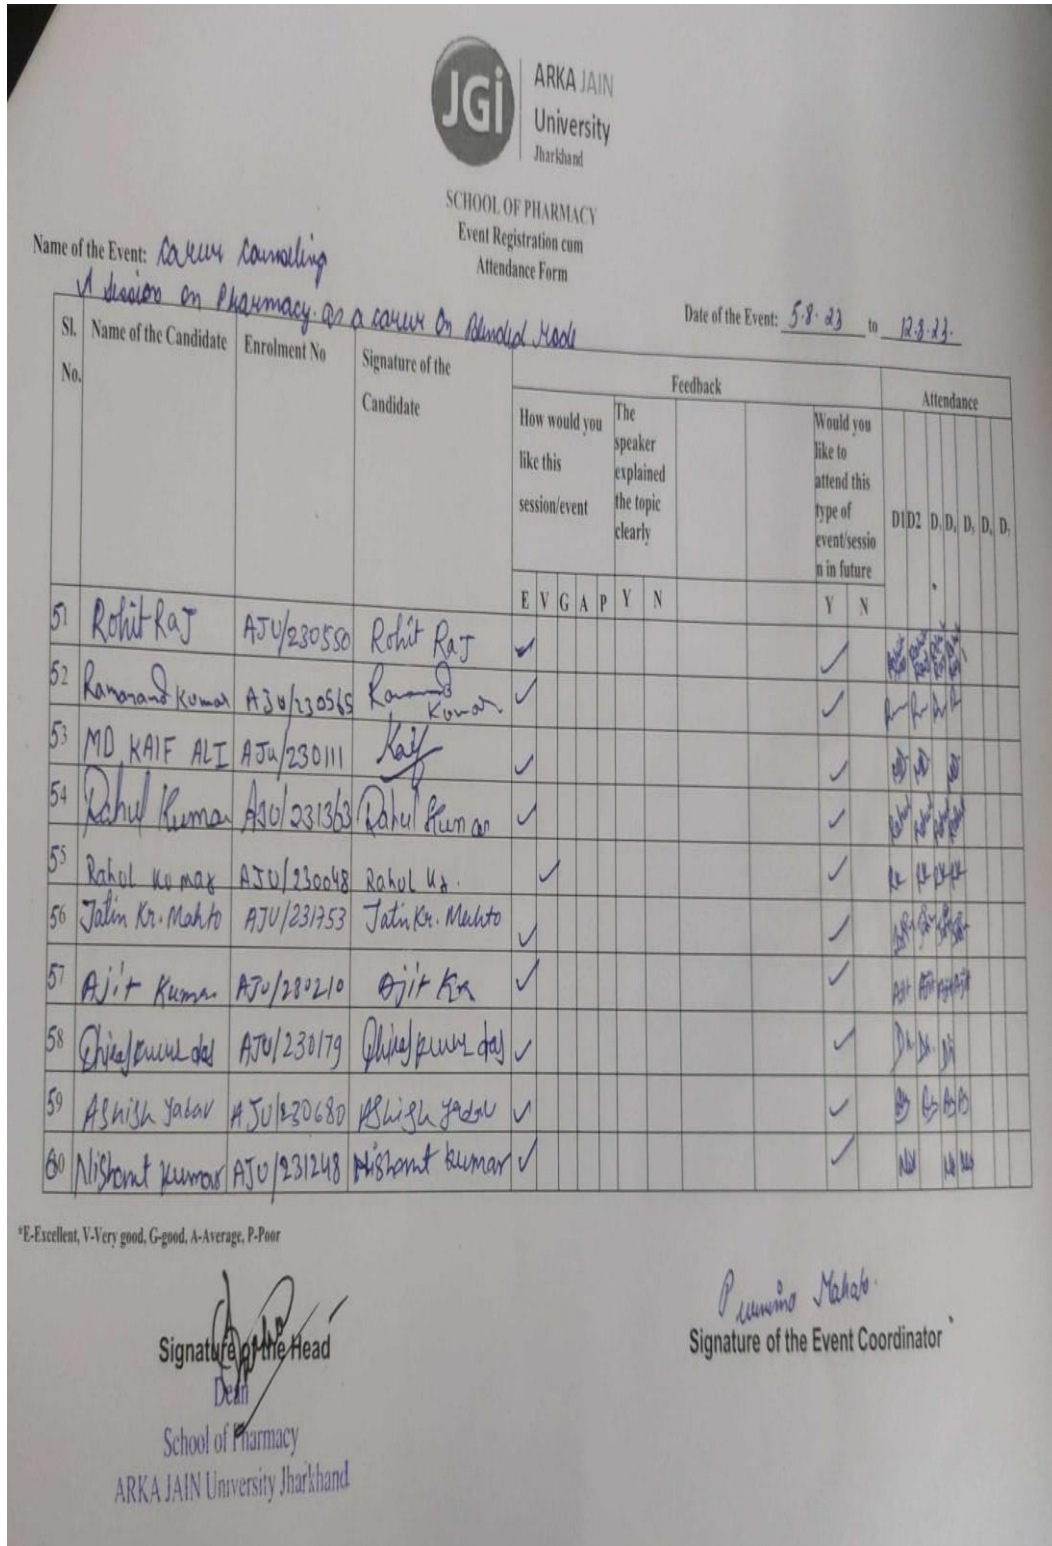 JGi
ARKA JAIN
University
Jharkhand
SCHOOL OF PHARMACY
Event Registration cum
Attendance Form
Name of the Event: Career Counseling
A Session on Pharmacy as a career on Blended Mode
Date of the Event: 5.8.23 to 12.8.23.
Sl. No. Name of the Candidate Enrolment No Signature of the Candidate Feedback Attendance
How would you like this session/event The speaker explained the topic clearly Would you like to attend this type of event/session in future D1 D2 D3 D4 D5 D6 D7
E V G A P Y N Y N
51 Rohit Raj AJU/230550 Rohit Raj ✓ ✓
52 Ramanand Kumar AJU/230565 Ramanand Kumar ✓ ✓
53 MD KAIF ALI AJU/230111 Kaif ✓ ✓
54 Rahul Kumar AJU/231363 Rahul Kumar ✓ ✓ Rahul Rahul Rahul Rahul
55 Rahul Kumar AJU/230048 Rahul Kr. ✓ ✓ RK RK RK RK
56 Jatin Kr. Mahto AJU/231753 Jatin Kr. Mahto ✓ ✓
57 Ajit Kumar AJU/230210 Ajit Kr ✓ ✓ Ajit Ajit Ajit Ajit
58 das AJU/230179 das ✓ ✓
59 Ashish Yadav AJU/230680 Ashish Yadav ✓ ✓
60 Nishant Kumar AJU/231248 Nishant Kumar ✓ ✓
*E-Excellent, V-Very good, G-good, A-Average, P-Poor
Mahato.
Signature of the Head
Signature of the Event Coordinator
Dean
School of Pharmacy
ARKA JAIN University Jharkhand